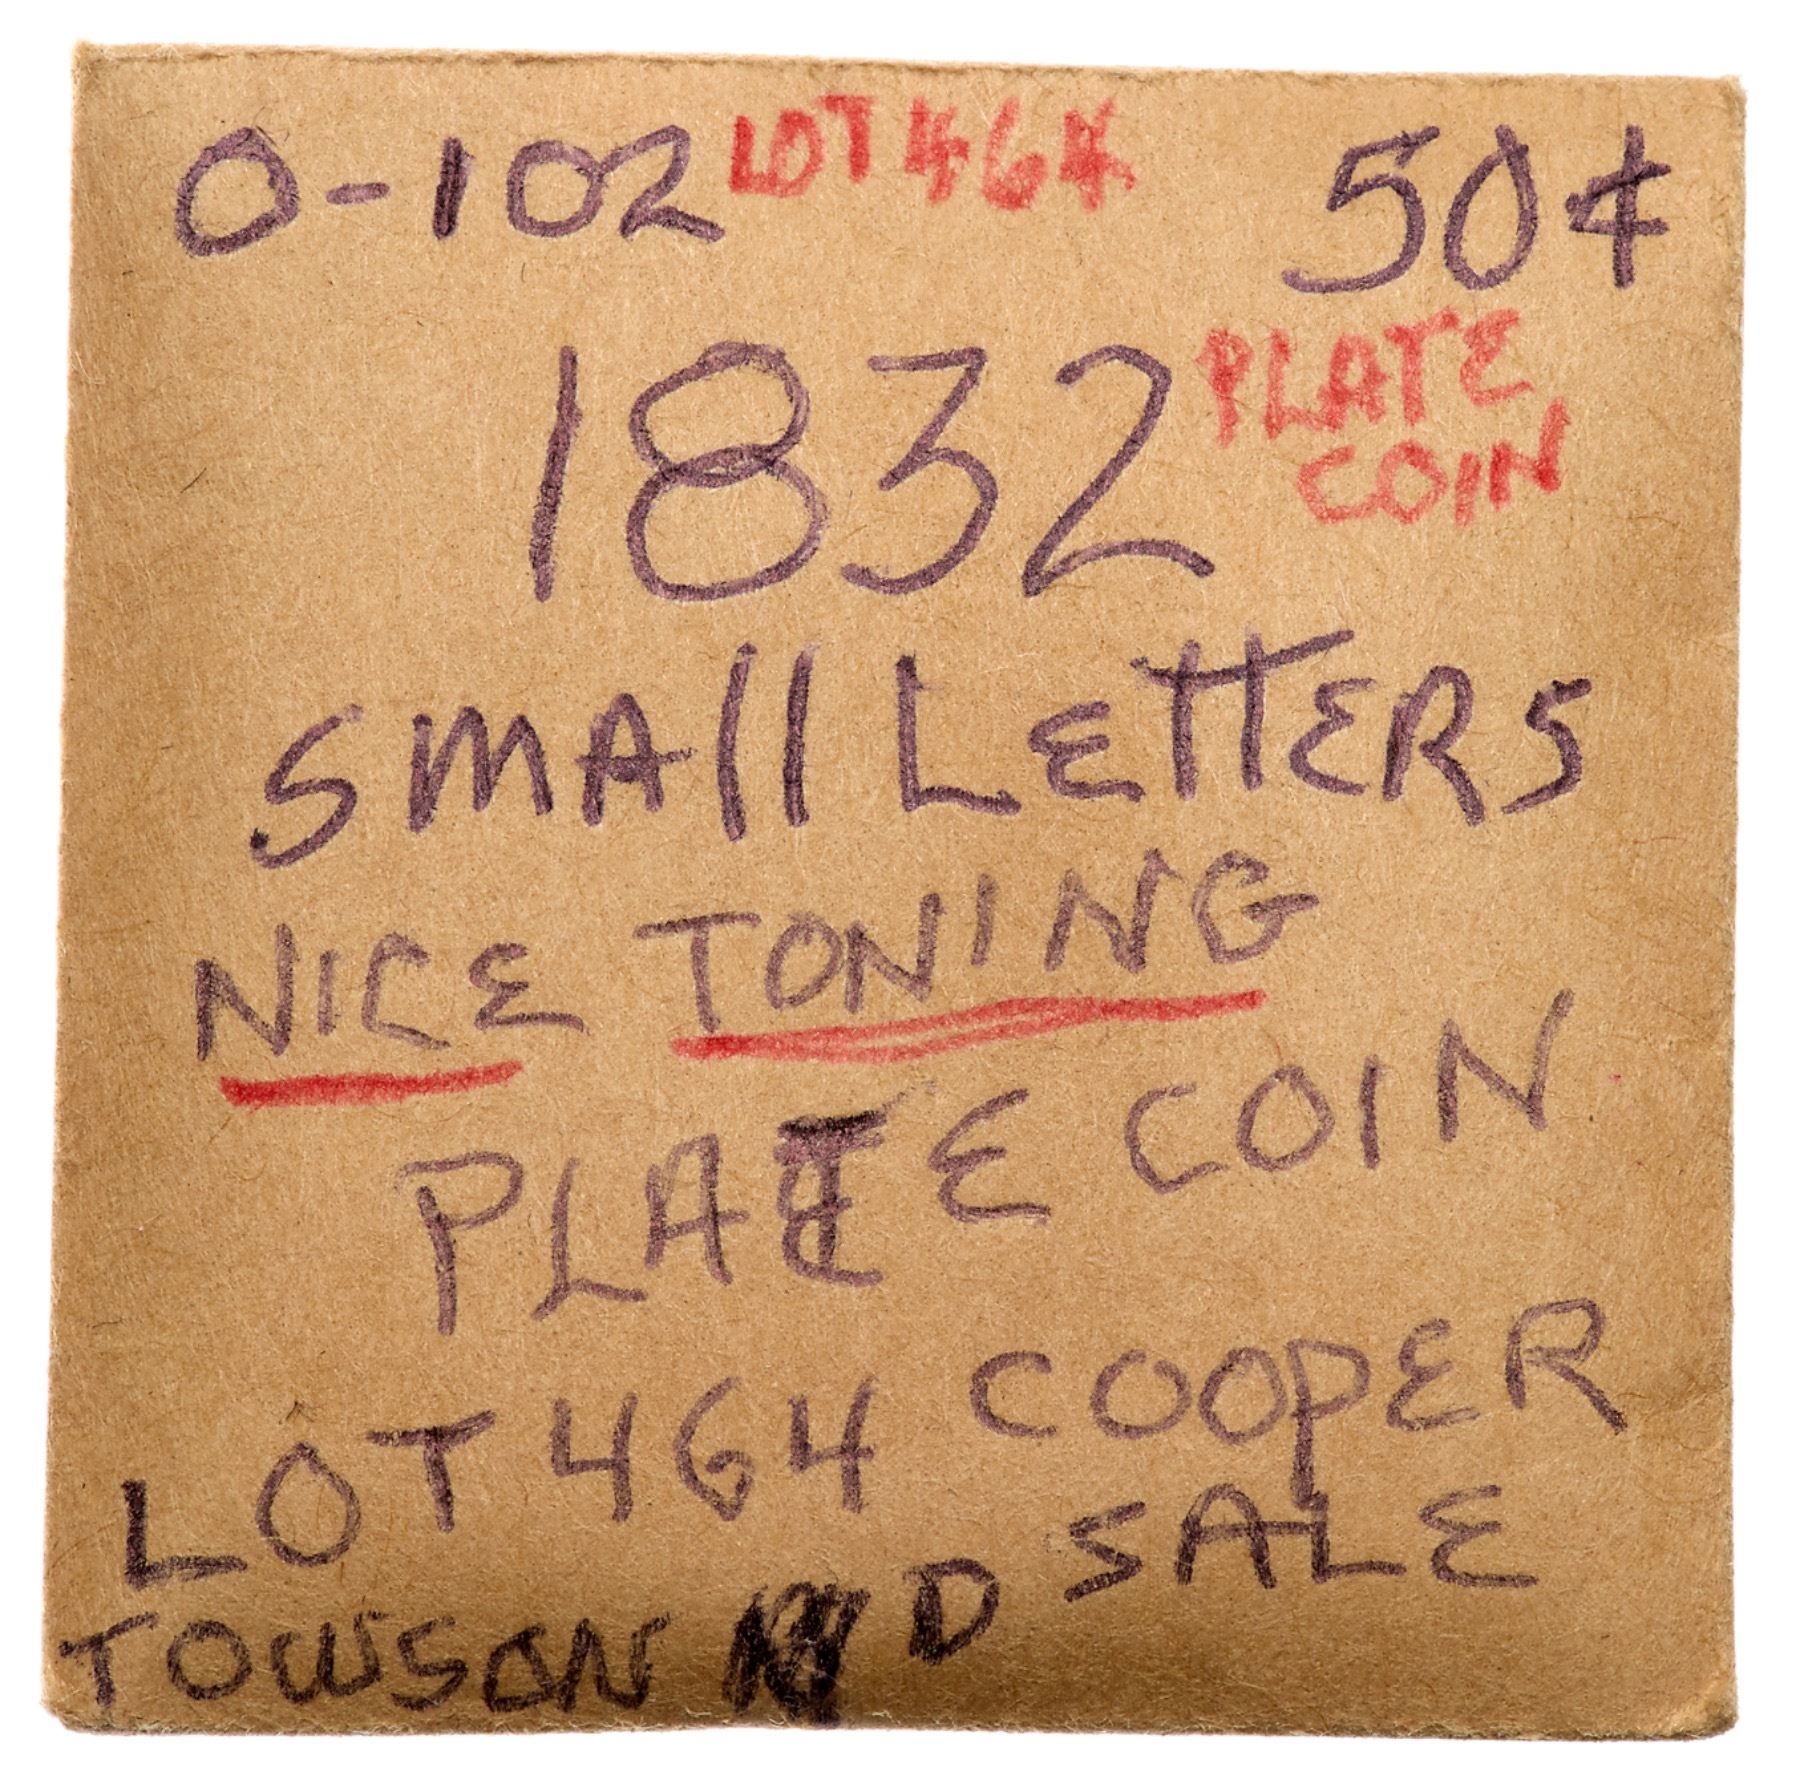 O-102 LOT 464 50¢
1832 PLATE
COIN
SMAll LETTERS
NICE TONING
PLATE COIN
LOT 464 COOPER
SALE
TOWSON MD